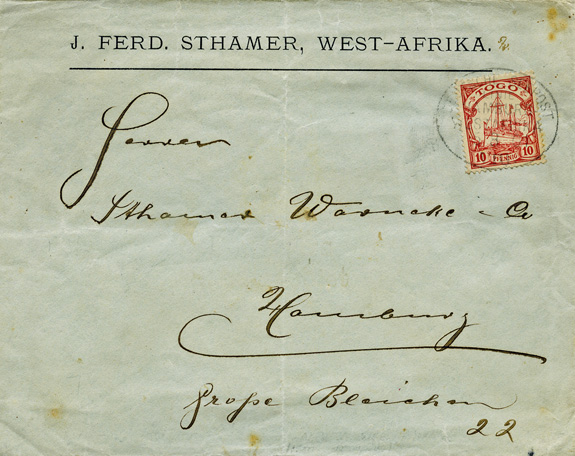 J. FERD. STHAMER, WEST-AFRIKA.
TOGO
10 PFENNIG 10
Herren
Sthamer Warncke & Co
Hamburg
große Bleichen
22